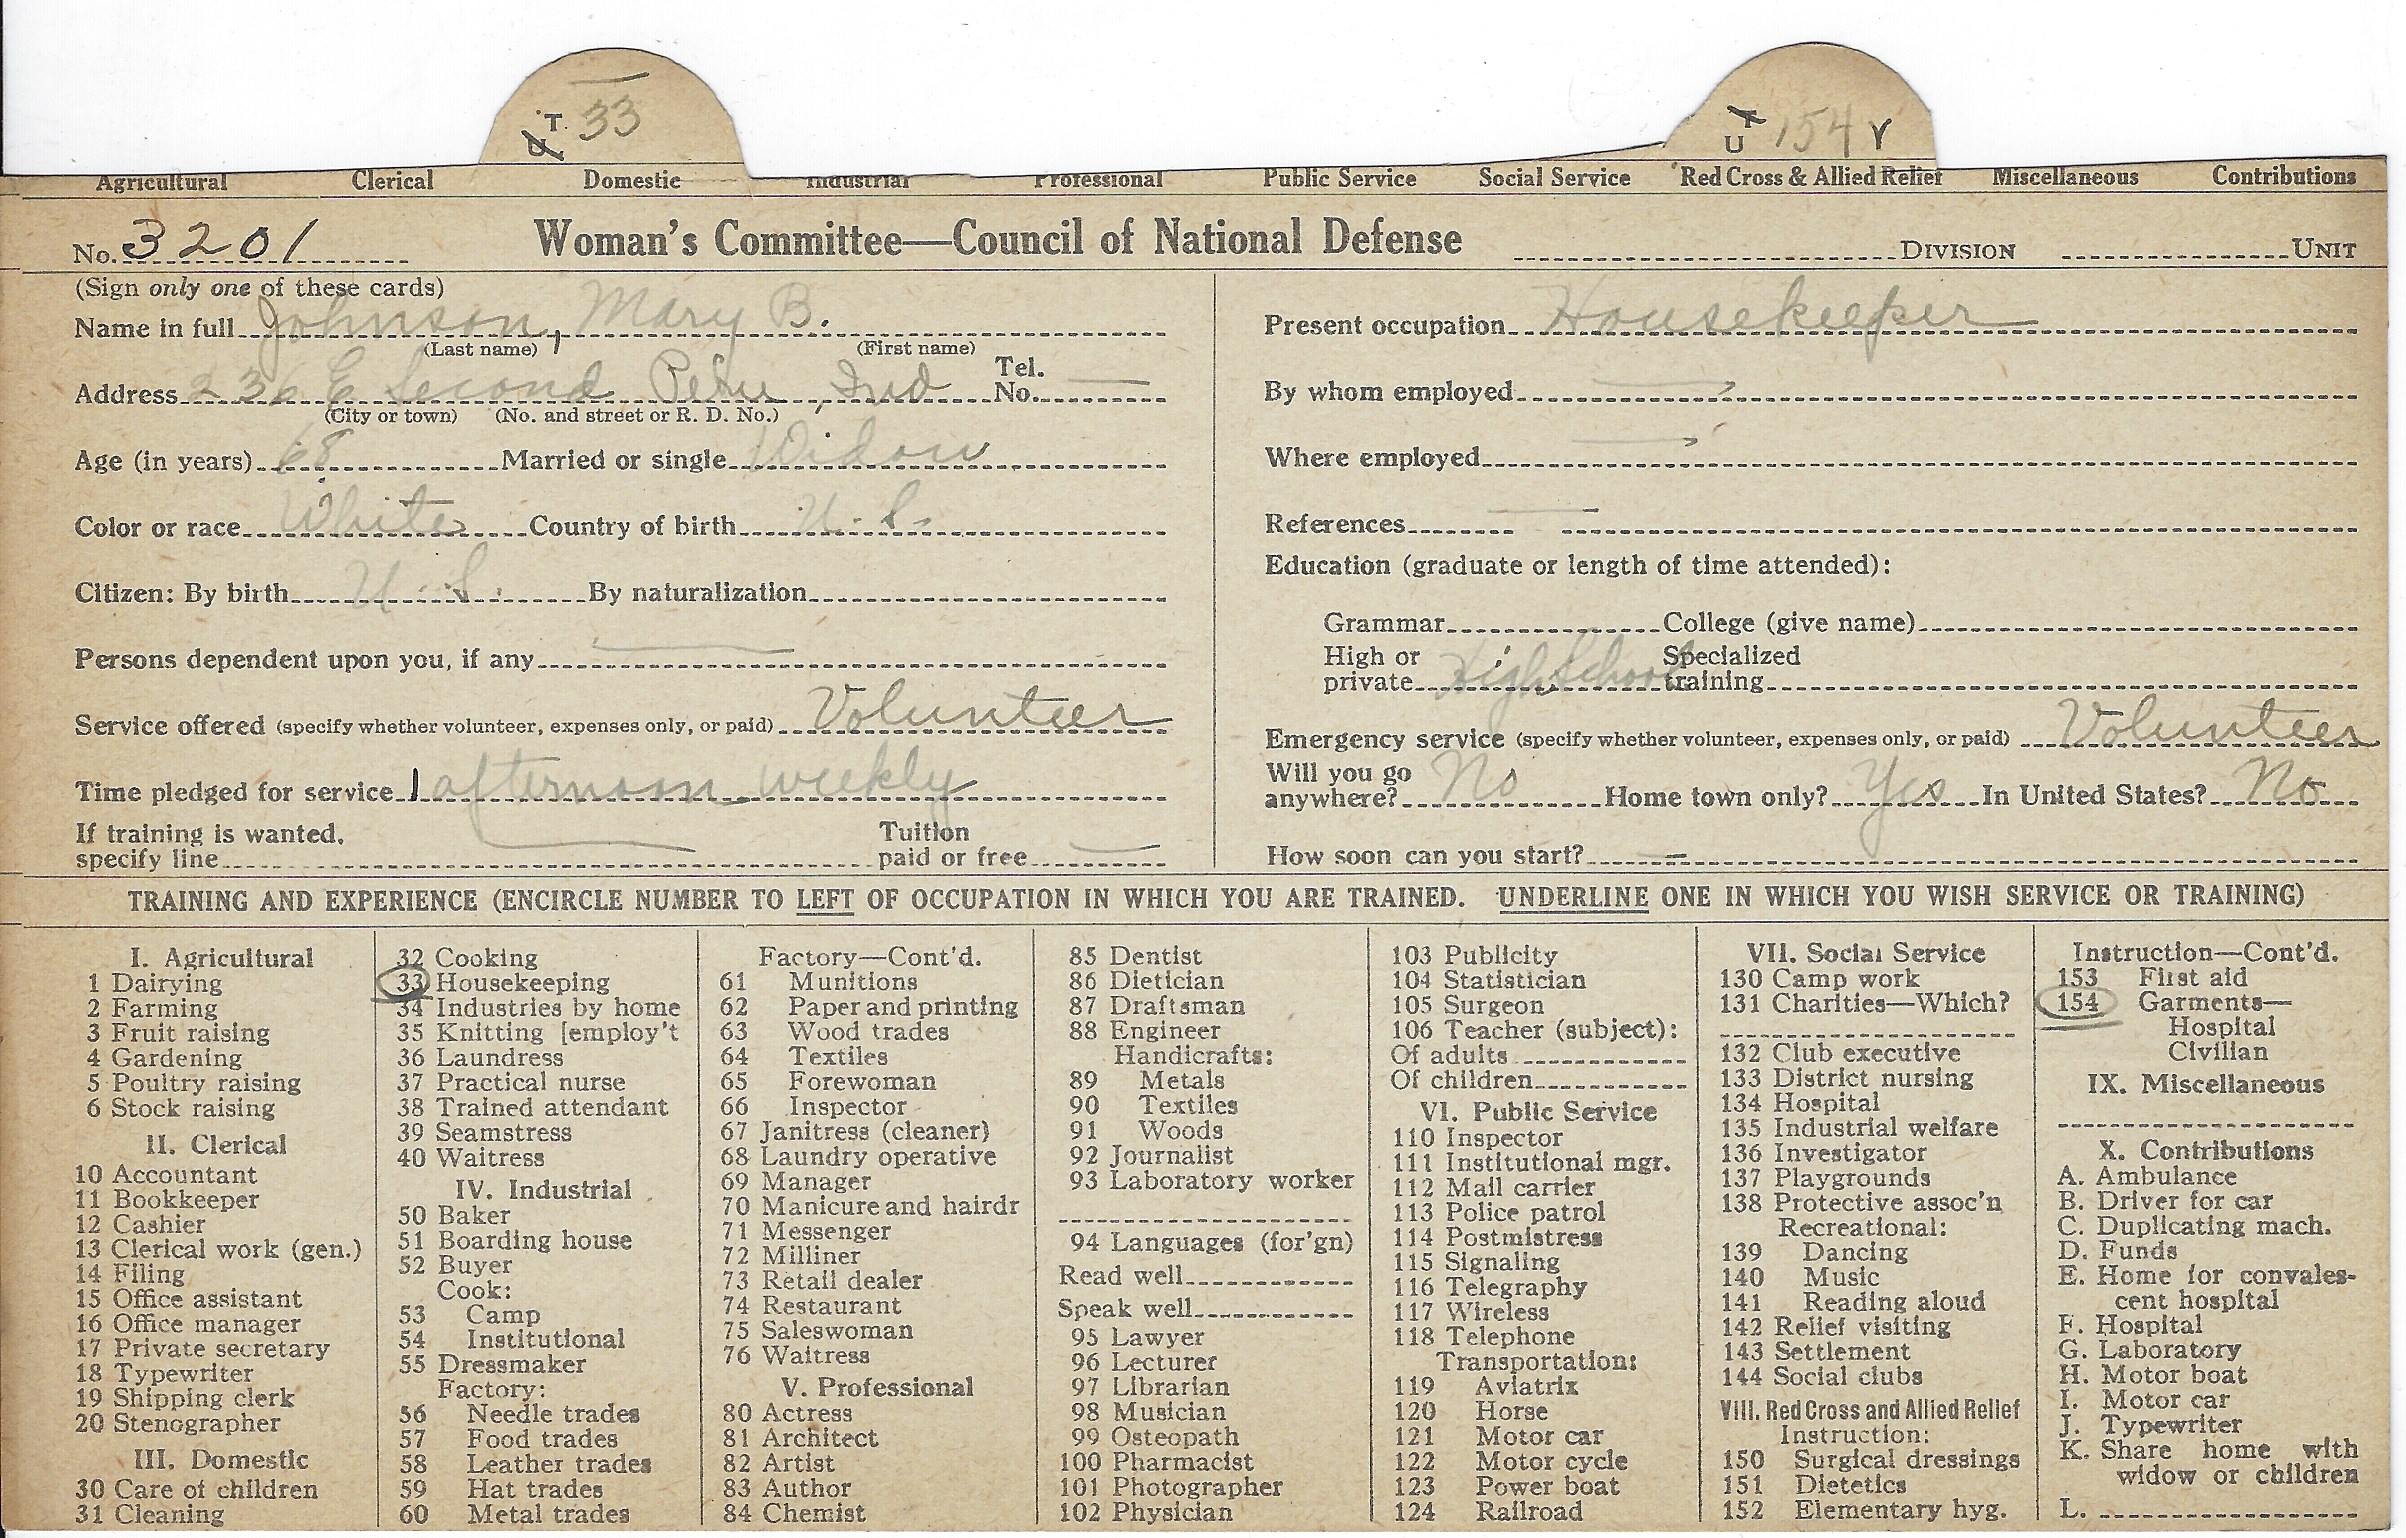 T. 33
U
T
U 154 V
Agricultural Clerical Domestic Industrial Professional Public Service Social Service Red Cross & Allied Relief Miscellaneous Contributions
No. 3201 Woman's Committee—Council of National Defense DIVISION UNIT
(Sign only one of these cards)
Name in full Johnson, Mary B.
(Last name) (First name)
Address 236 E Second Peru, Ind Tel. No.
(City or town) (No. and street or R. D. No.)
Age (in years) 68 Married or single Widow
Color or race White Country of birth U. S.
Citizen: By birth U. S. By naturalization
Persons dependent upon you, if any
Service offered (specify whether volunteer, expenses only, or paid) Volunteer
Time pledged for service 1 afternoon weekly
If training is wanted, specify line Tuition paid or free
Present occupation Housekeeper
By whom employed
Where employed
References
Education (graduate or length of time attended):
Grammar College (give name)
High or private High School Specialized training
Emergency service (specify whether volunteer, expenses only, or paid) Volunteer
Will you go anywhere? No Home town only? Yes In United States? No
How soon can you start?
TRAINING AND EXPERIENCE (ENCIRCLE NUMBER TO LEFT OF OCCUPATION IN WHICH YOU ARE TRAINED. UNDERLINE ONE IN WHICH YOU WISH SERVICE OR TRAINING)
I. Agricultural
1 Dairying
2 Farming
3 Fruit raising
4 Gardening
5 Poultry raising
6 Stock raising
II. Clerical
10 Accountant
11 Bookkeeper
12 Cashier
13 Clerical work (gen.)
14 Filing
15 Office assistant
16 Office manager
17 Private secretary
18 Typewriter
19 Shipping clerk
20 Stenographer
III. Domestic
30 Care of children
31 Cleaning
32 Cooking
33 Housekeeping
34 Industries by home
35 Knitting [employ't
36 Laundress
37 Practical nurse
38 Trained attendant
39 Seamstress
40 Waitress
IV. Industrial
50 Baker
51 Boarding house
52 Buyer
Cook:
53 Camp
54 Institutional
55 Dressmaker
Factory:
56 Needle trades
57 Food trades
58 Leather trades
59 Hat trades
60 Metal trades
Factory—Cont'd.
61 Munitions
62 Paper and printing
63 Wood trades
64 Textiles
65 Forewoman
66 Inspector
67 Janitress (cleaner)
68 Laundry operative
69 Manager
70 Manicure and hairdr
71 Messenger
72 Milliner
73 Retail dealer
74 Restaurant
75 Saleswoman
76 Waitress
V. Professional
80 Actress
81 Architect
82 Artist
83 Author
84 Chemist
85 Dentist
86 Dietician
87 Draftsman
88 Engineer
Handicrafts:
89 Metals
90 Textiles
91 Woods
92 Journalist
93 Laboratory worker
94 Languages (for'gn)
Read well
Speak well
95 Lawyer
96 Lecturer
97 Librarian
98 Musician
99 Osteopath
100 Pharmacist
101 Photographer
102 Physician
103 Publicity
104 Statistician
105 Surgeon
106 Teacher (subject):
Of adults
Of children
VI. Public Service
110 Inspector
111 Institutional mgr.
112 Mail carrier
113 Police patrol
114 Postmistress
115 Signaling
116 Telegraphy
117 Wireless
118 Telephone
Transportation:
119 Aviatrix
120 Horse
121 Motor car
122 Motor cycle
123 Power boat
124 Railroad
VII. Social Service
130 Camp work
131 Charities—Which?
132 Club executive
133 District nursing
134 Hospital
135 Industrial welfare
136 Investigator
137 Playgrounds
138 Protective assoc'n
Recreational:
139 Dancing
140 Music
141 Reading aloud
142 Relief visiting
143 Settlement
144 Social clubs
VIII. Red Cross and Allied Relief
Instruction:
150 Surgical dressings
151 Dietetics
152 Elementary hyg.
Instruction—Cont'd.
153 First aid
154 Garments—
Hospital
Civilian
IX. Miscellaneous
X. Contributions
A. Ambulance
B. Driver for car
C. Duplicating mach.
D. Funds
E. Home for convales-
cent hospital
F. Hospital
G. Laboratory
H. Motor boat
I. Motor car
J. Typewriter
K. Share home with
widow or children
L.